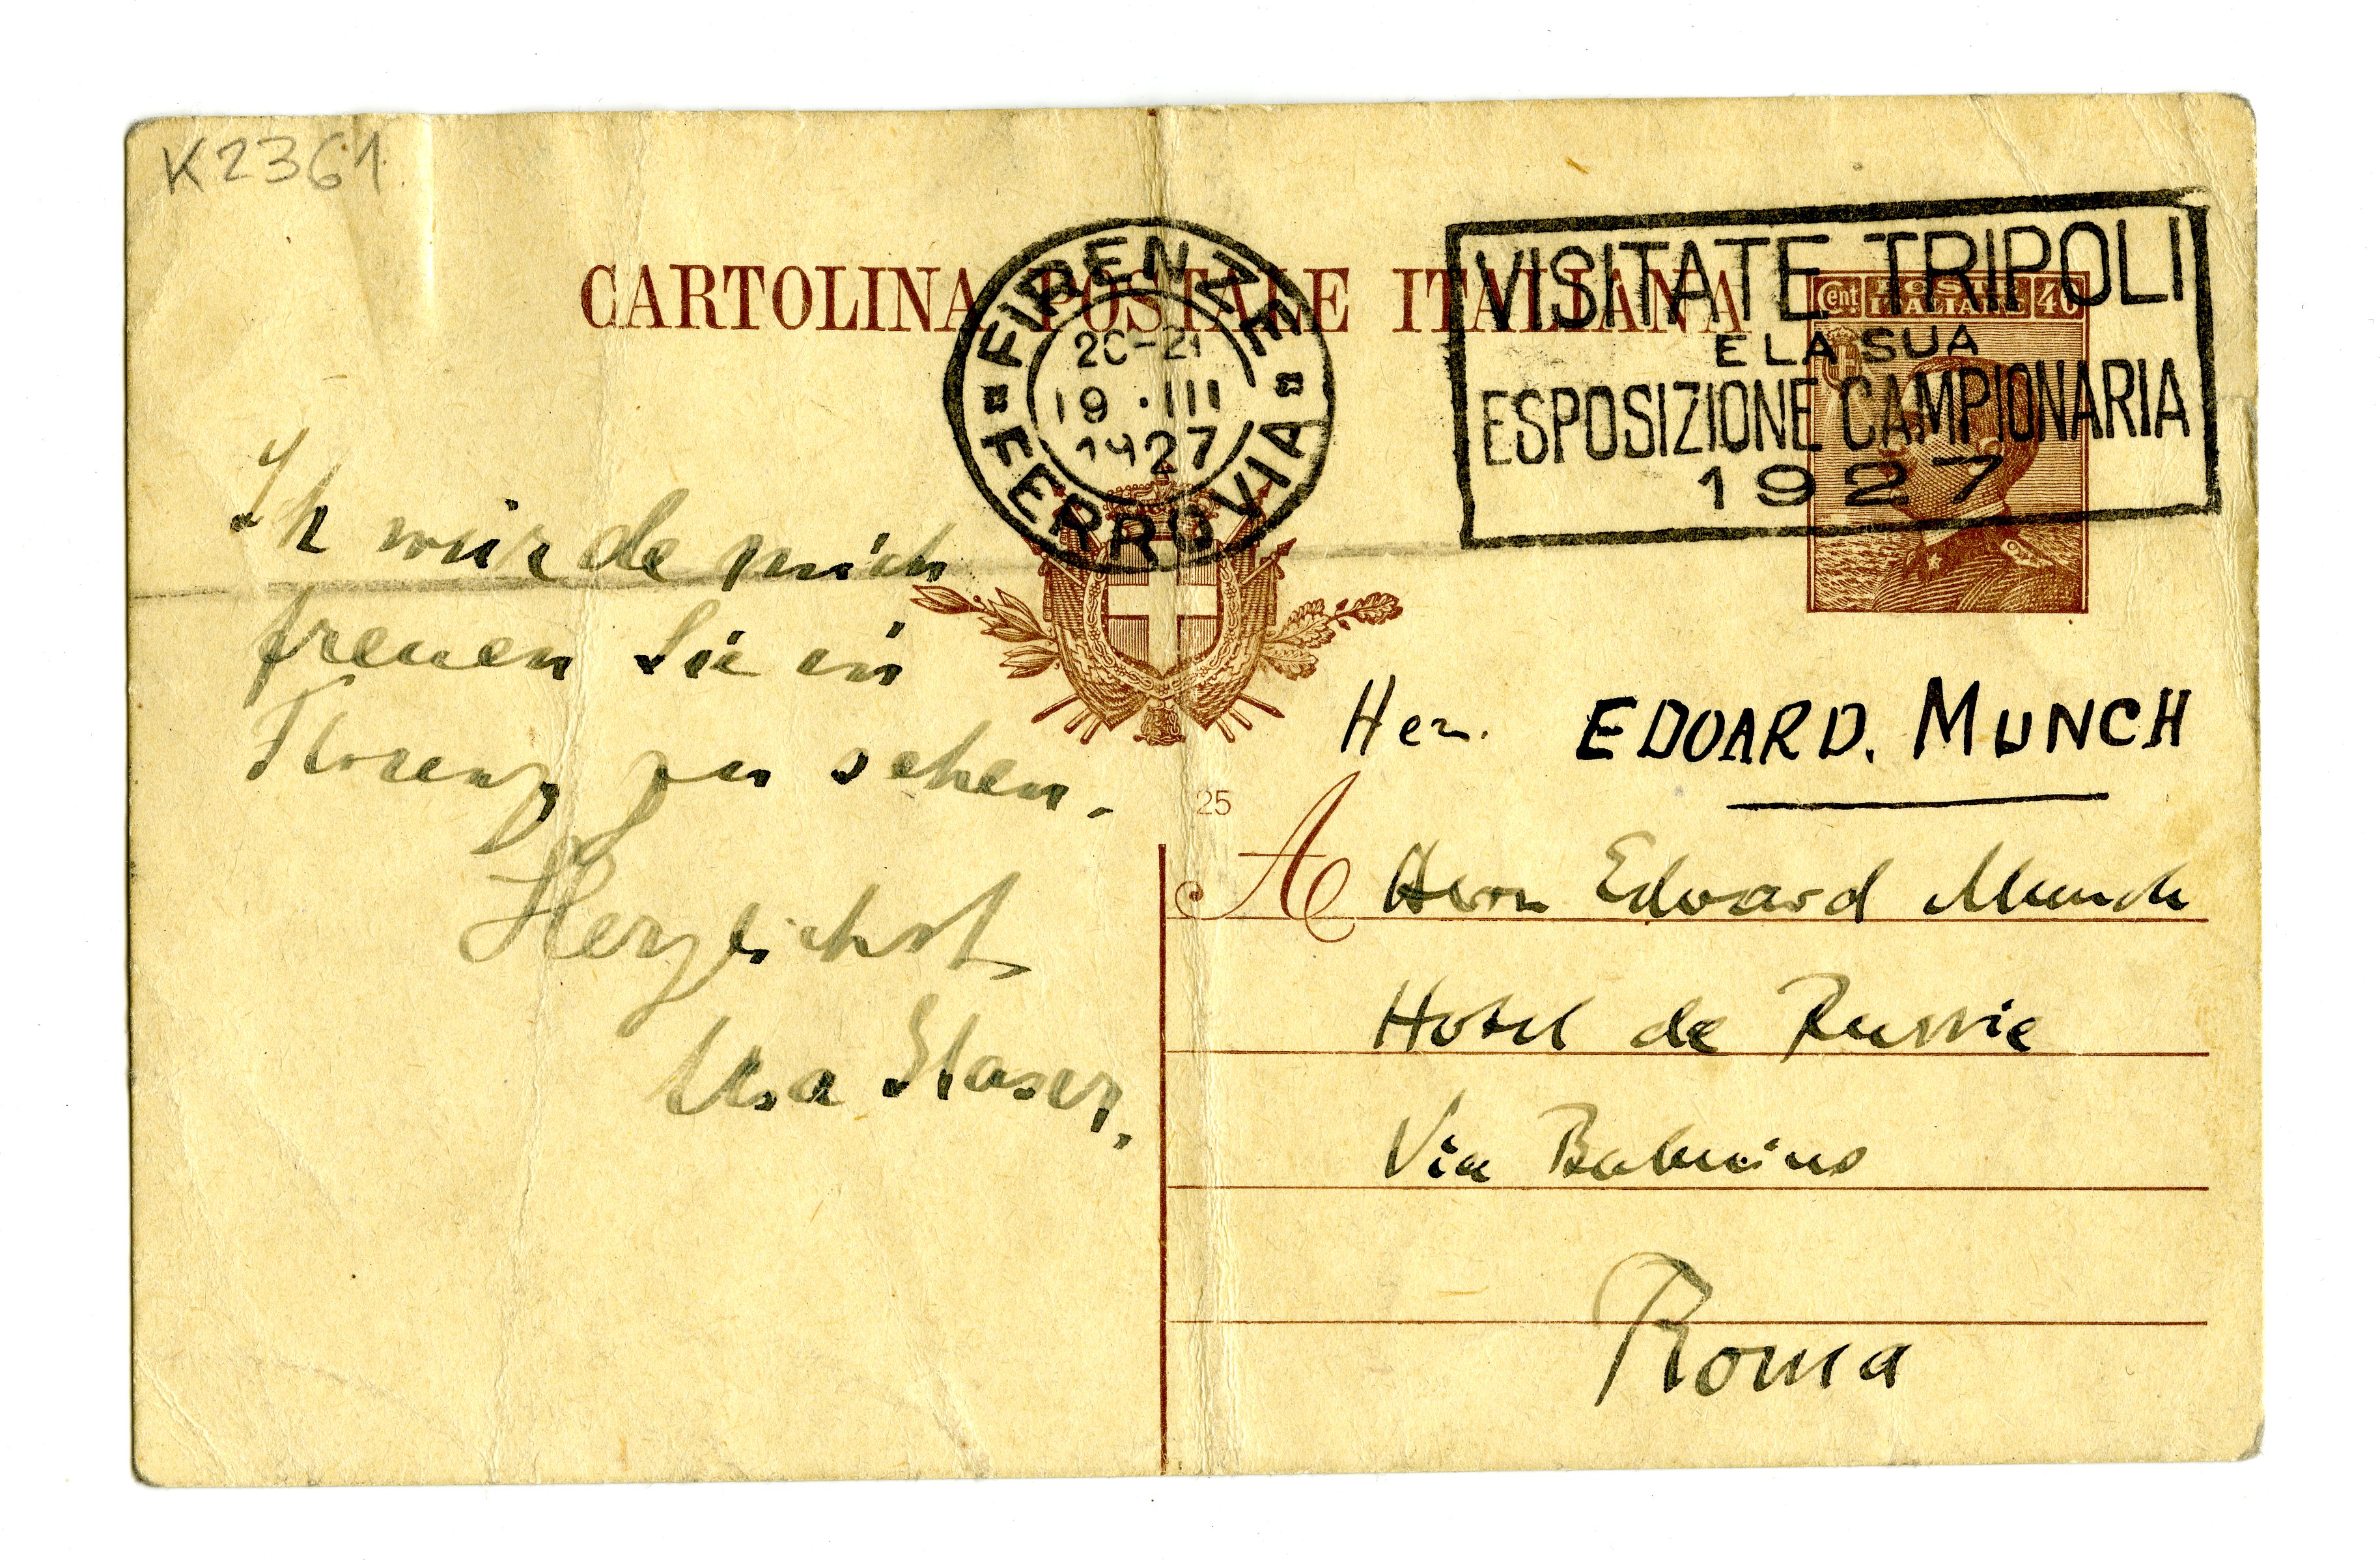 K2361
CARTOLINA POSTALE ITALIANA
FIRENZE
20-21
19 · III
1927
FERROVIA
VISITATE TRIPOLI
E LA SUA
ESPOSIZIONE CAMPIONARIA
1927
Cent POSTE ITALIANE 40
Ich würde mich
freuen Sie in
Florenz zu sehen.
Herzlichst
Elsa Glaser.
25
Herr. EDOARD. MUNCH
A Herrn Edvard Munch
Hotel de Russie
Via Babuino
Roma